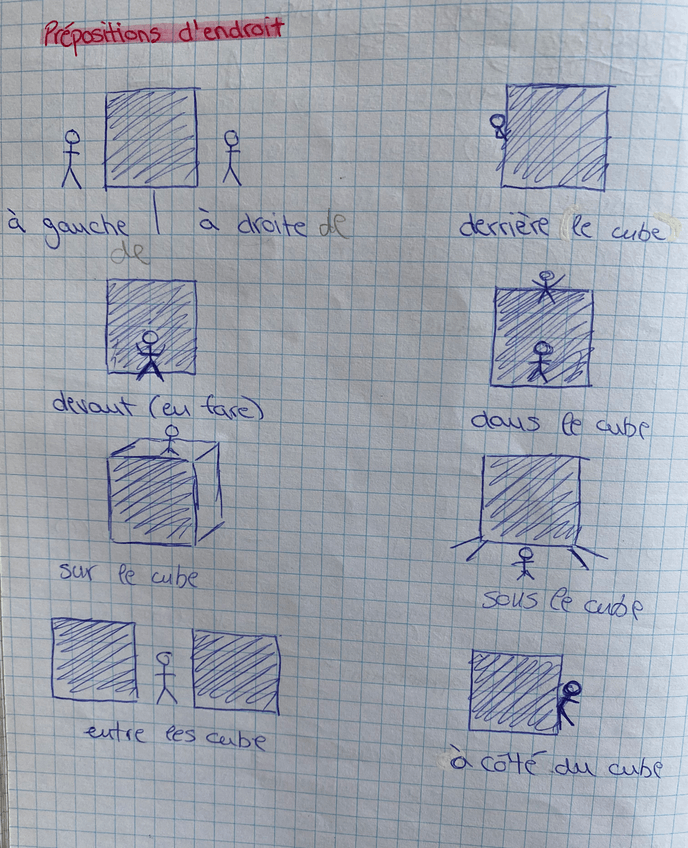 Prépositions d'endroit
à gauche | à droite de
de
derrière le cube
devant (en fare)
dans le cube
sur le cube
sous le cube
entre les cube
à côté du cube